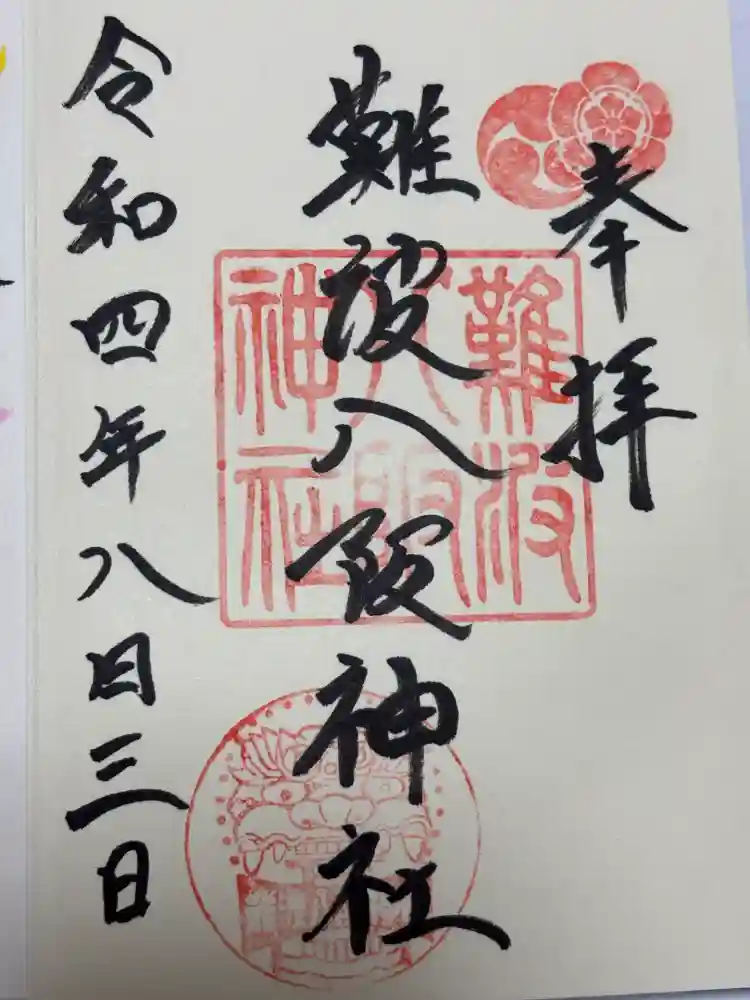 奉拝
難波八阪神社
令和四年八月三日
難波
八阪
神社